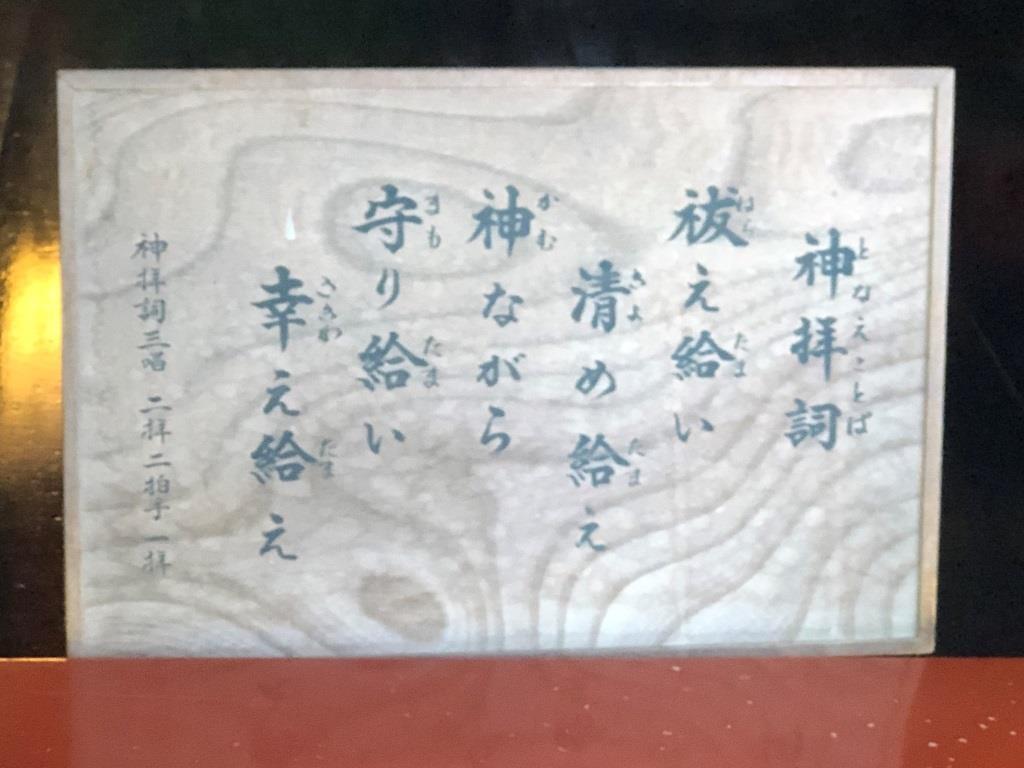 神拝詞
となえことば
祓え給い
はら
たま
清め給え
きよ
たま
神ながら
かむ
守り給い
まも
たま
幸え給え
さきわ
たま
神拝詞三唱 二拝二拍手一拝